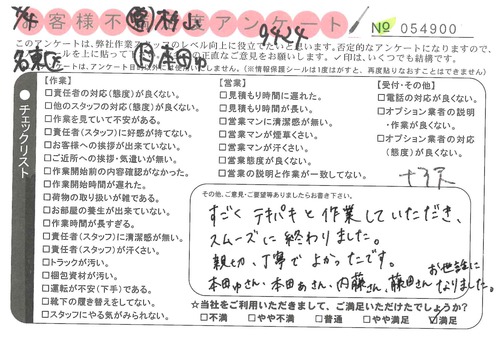 お客様不満度アンケート
0424
No 054900
このアンケートは、弊社作業スタッフのレベル向上に役立てたいと思います。否定的なアンケートになりますので、
正直なご意見をお願いします。✓印は、いくつでも結構です。
名東区
本田ゆ
(※情報保護シールは1度はがすと、再度貼りなおすことはできません)
チェックリスト
【作業】
□責任者の対応(態度)が良くない。
□他のスタッフの対応(態度)が良くない。
□作業を見ていて不安がある。
□責任者(スタッフ)に好感が持てない。
□お客様への挨拶が出来ていない。
□ご近所への挨拶・気遣いが無い。
□作業開始前の内容確認がなかった。
□作業開始時間が遅れた。
□荷物の取り扱いが雑である。
□お部屋の養生が出来ていない。
□作業時間が長すぎる。
□責任者(スタッフ)に清潔感が無い。
□責任者(スタッフ)が汗くさい。
□トラックが汚い。
□梱包資材が汚い。
□運転が不安(下手)である。
□靴下の履き替えをしてない。
□スタッフにやる気がみられない。
【営業】
□見積もり時間に遅れた。
□見積もり時間が長い。
□営業マンに清潔感が無い。
□営業マンが煙草くさい。
□営業マンが汗くさい。
□営業態度が良くない。
□営業の説明と作業が一致してない。
【受付・その他】
□電話の対応が良くない。
□オプション業者の説明
・作業が良くない。
□オプション業者の対応
(態度)が良くない。
その他、ご意見・ご要望等ありましたらお書き下さい。
すごくテキパキと作業していただき、
スムーズに終わりました。
親切、丁寧でよかったです。
本田ゆさん、本田あさん、内藤さん、藤田さんお世話に
なりました。
☆当社をご利用いただきまして、ご満足いただけたでしょうか?
□不満 □やや不満 □普通 □やや満足 ☑満足